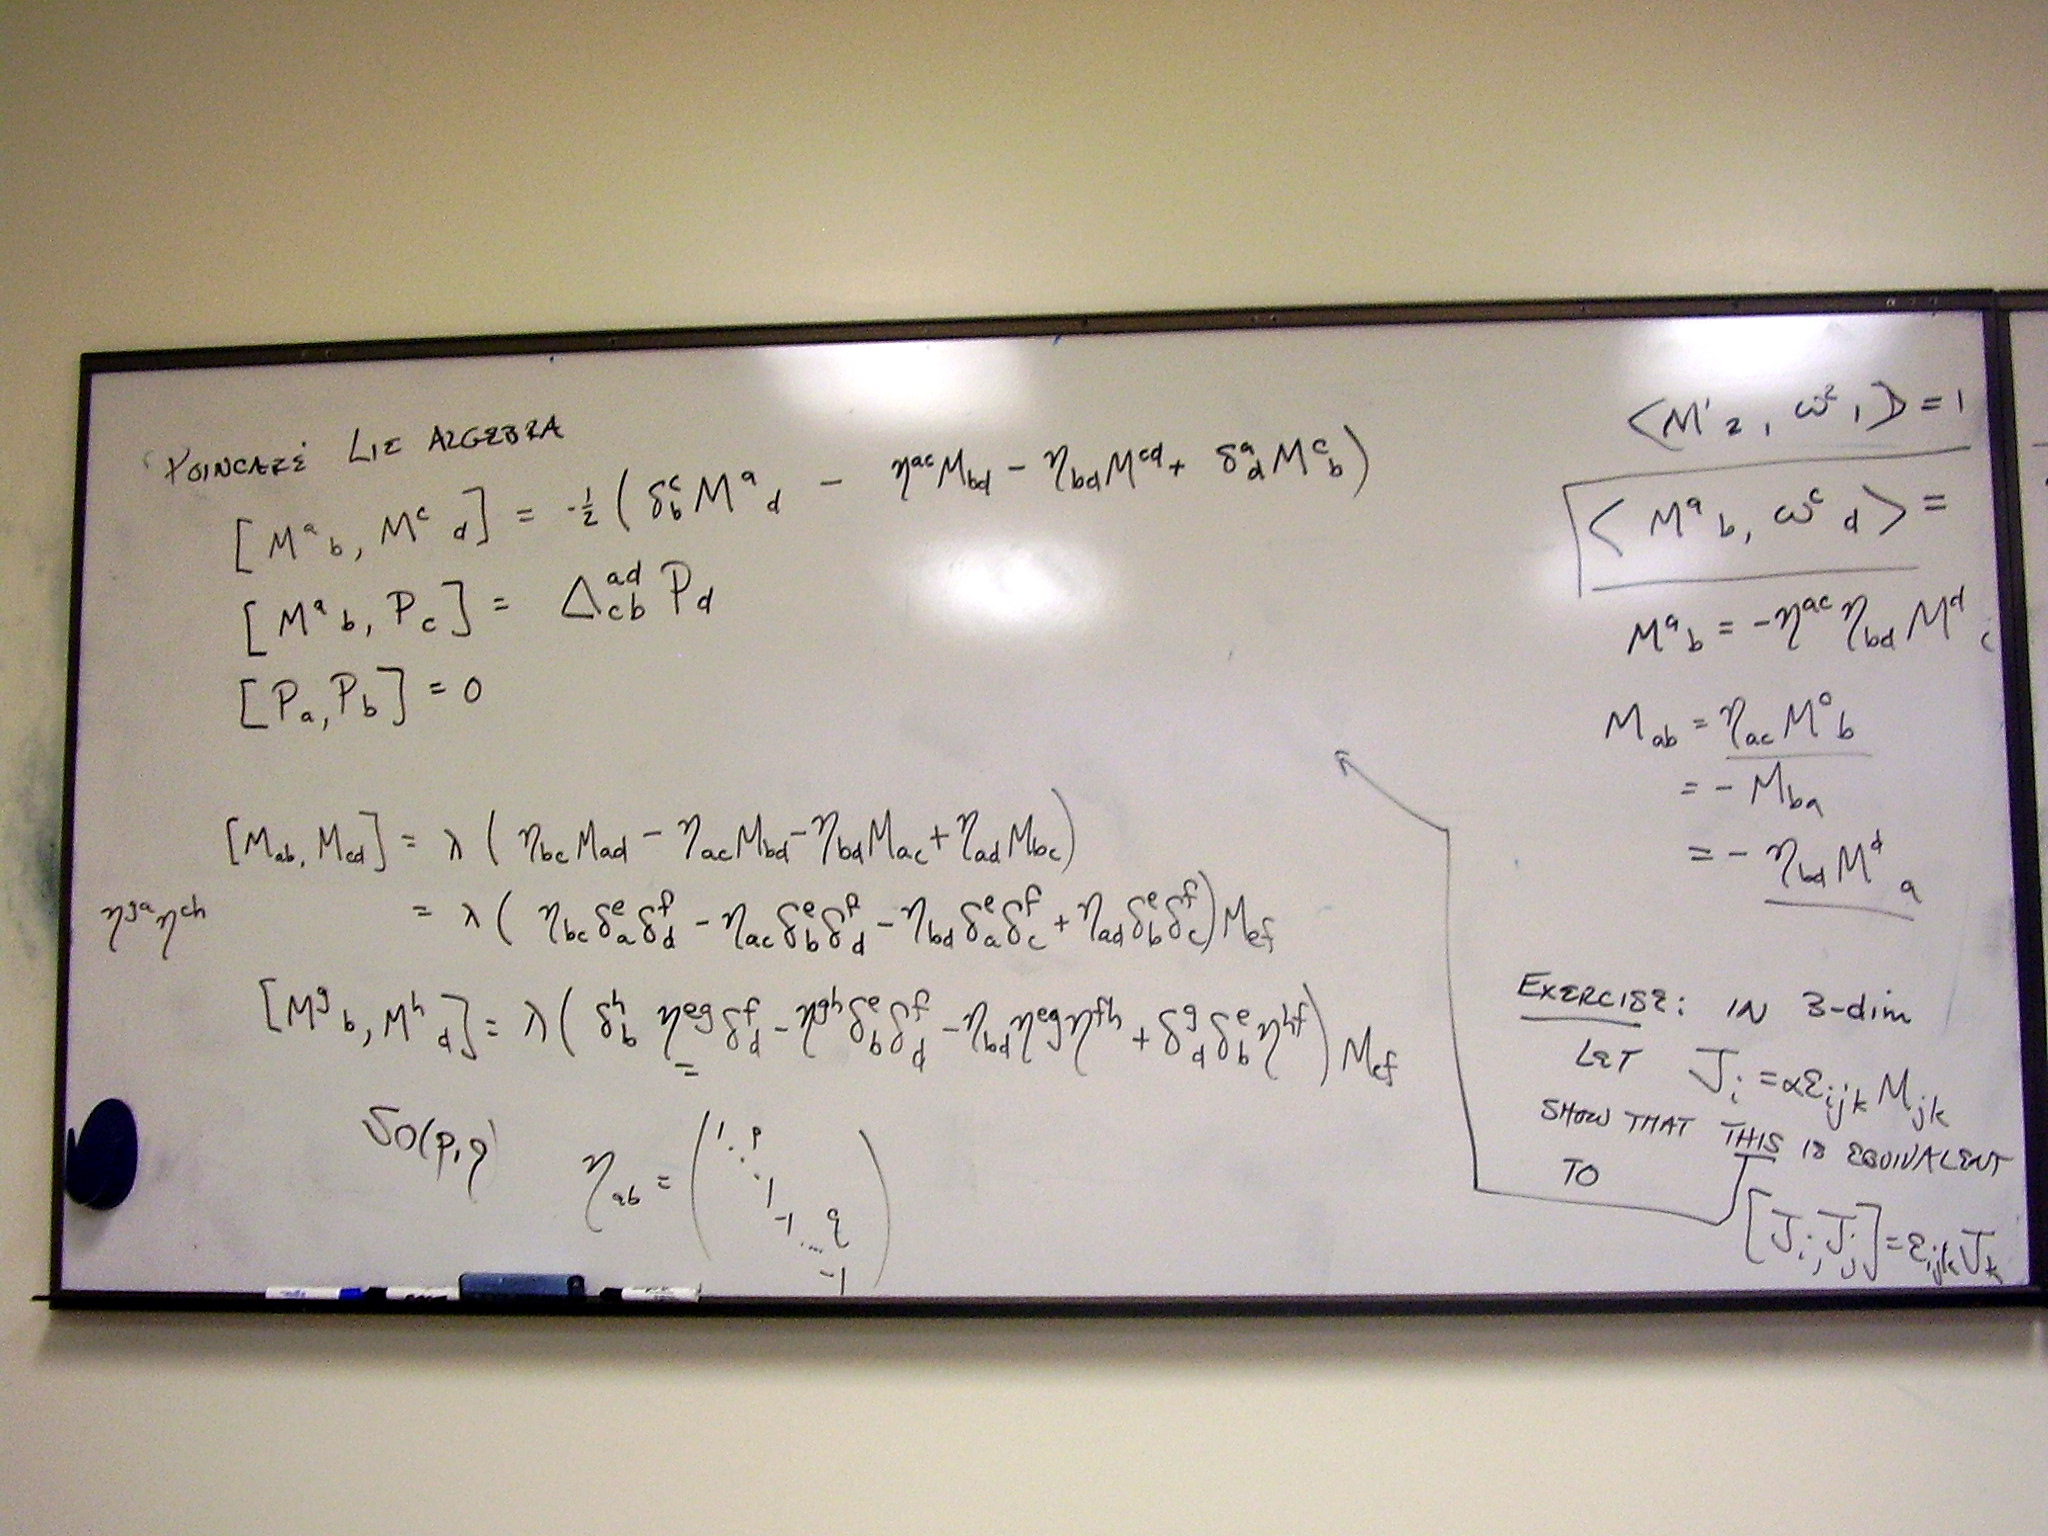 POINCARÉ LIE ALGEBRA
[Mᵃ_b, Mᶜ_d] = -½ (δᶜ_b Mᵃ_d − ηᵃᶜ M_bd − η_bd Mᶜᵈ + δᵃ_d Mᶜ_b)
[Mᵃ_b, P_c] = Δ^{ad}_{cb} P_d
[P_a, P_b] = 0
[M_ab, M_cd] = λ ( η_bc M_ad − η_ac M_bd − η_bd M_ac + η_ad M_bc)
= λ ( η_bc δᵉ_a δᶠ_d − η_ac δᵉ_b δᶠ_d − η_bd δᵉ_a δᶠ_c + η_ad δᵉ_b δᶠ_c) M_ef
η^{ga} η^{ch}
[M^g_b, M^h_d] = λ ( δ^h_b η^{eg} δ^f_d − η^{gh} δ^e_b δ^f_d − η_bd η^{eg} η^{fh} + δ^g_d δ^e_b η^{fh}) M_ef
SO(p,q)
η_ab = ( 1 ⋱ p 1 -1 … q -1 )
⟨M¹_2, ω²_1⟩ = 1
⟨Mᵃ_b, ωᶜ_d⟩ =
Mᵃ_b = −ηᵃᶜ η_bd Mᵈ_c
M_ab = η_ac Mᶜ_b
= − M_ba
= − η_bd Mᵈ_a
EXERCISE: IN 3-dim
LET J_i = α ε_ijk M_jk
SHOW THAT THIS IS EQUIVALENT
TO
[J_i, J_j] = ε_ijk J_k